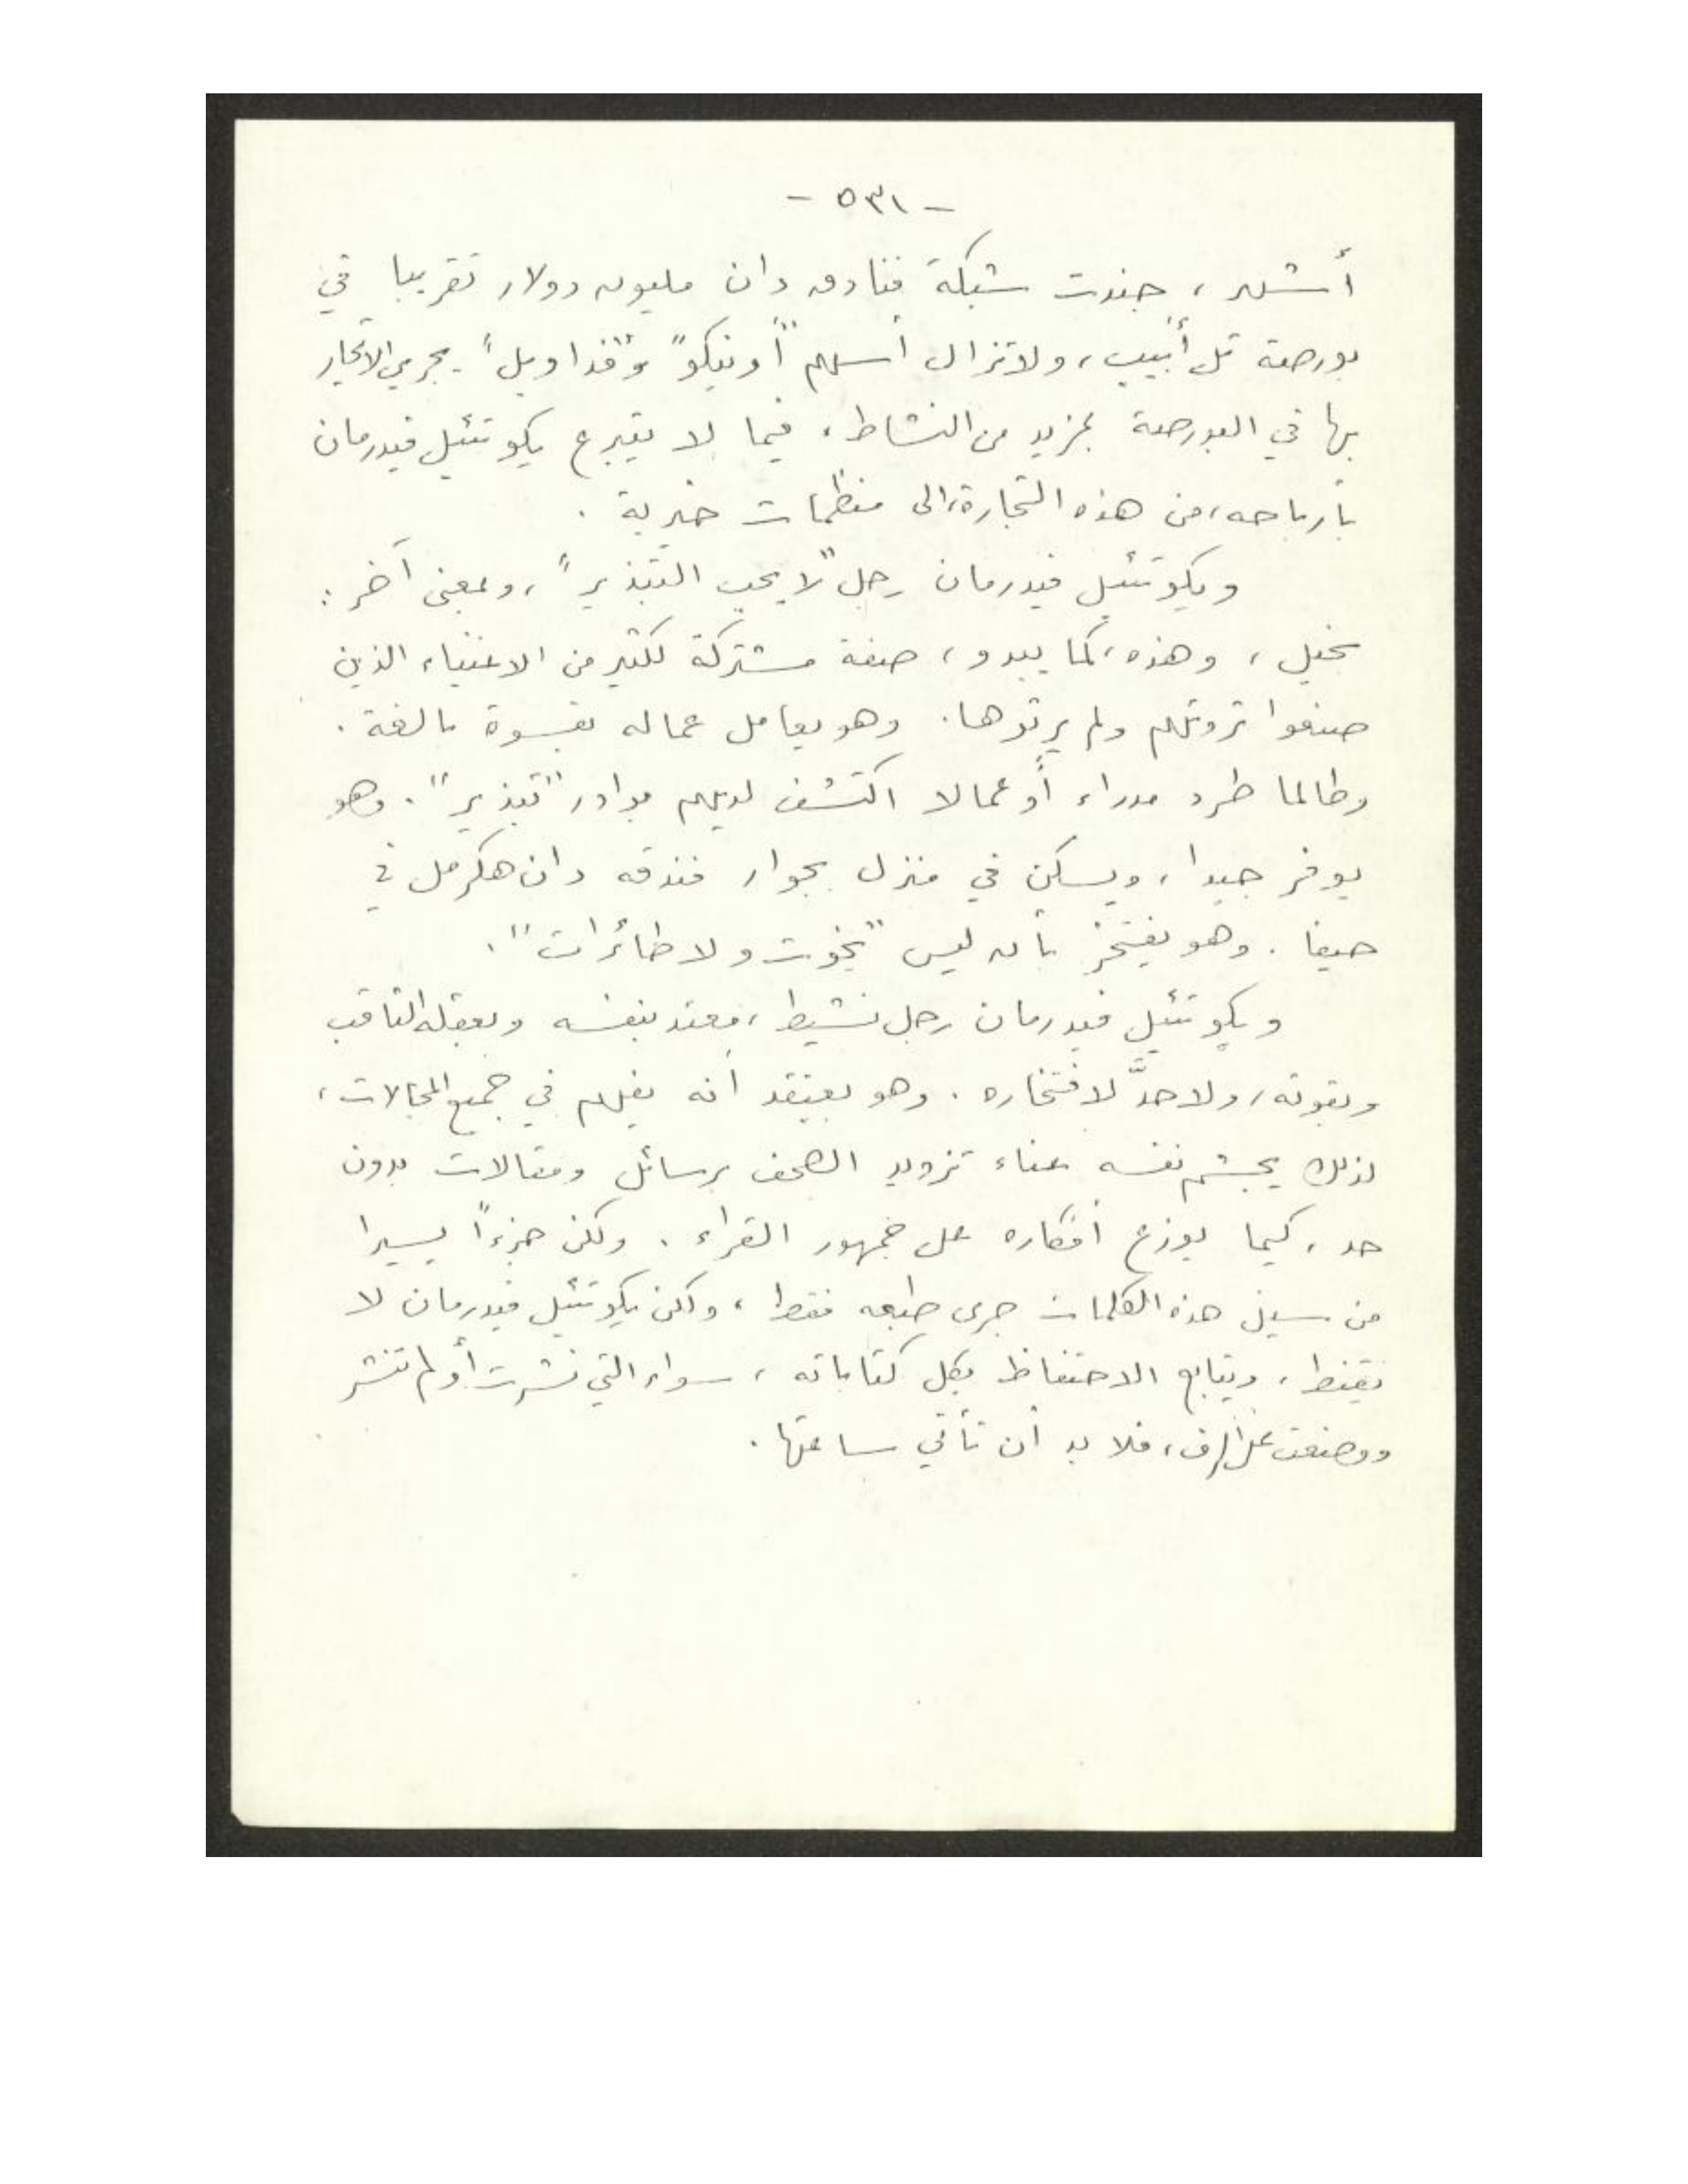 - ٥٣١ -
أشهر، جندت شبكة فنادق دان مليون دولار تقريبا في
بورصة تل أبيب، ولا تزال أسهم "أونيكو" و"فداويل" يجري الاتجار
بها في البورصة بمزيد من النشاط، فيما لا يتبرع يكوتئيل فيدرمان
بأرباحه، من هذه التجارة، الى منظمات خيرية .
ويكوتئيل فيدرمان رجل "لا يحب التبذير"، وبمعنى آخر :
بخيل، وهذه، كما يبدو، صفة مشتركة لكثير من الاغنياء الذين
صنعوا ثروتهم ولم يرثوها. وهو يعامل عماله بقسوة بالغة .
وطالما طرد مدراء أو عمالا اكتشف لديهم بوادر "تبذير". وهو
يوفر جيدا، ويسكن في منزل بجوار فندقه دان هكرمل في
حيفا . وهو يفتخر بأنه ليس "يخوت ولا طائرات".
ويكوتئيل فيدرمان رجل نشيط، معتد بنفسه وبعقله الثاقب
وبقوته، ولا حدَّ لافتخاره . وهو يعتقد أنه يفهم في جميع المجالات،
لذلك يجشم نفسه عناء تزويد الصحف برسائل ومقالات بدون
حد، كيما يوزع أفكاره على جمهور القراء . ولكن جزءاً يسيرا
من سيل هذه الكلمات جرى طبعه فقط، ولكن يكوتئيل فيدرمان لا
يقنط، ويتابع الاحتفاظ بكل كتاباته، سواء التي نشرت أو لم تنشر
ووضعت على الرف، فلا بد أن تأتي ساعتها .